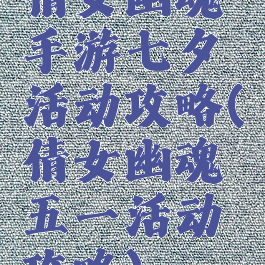 倩女幽魂
手游七夕
活动攻略(
倩女幽魂
五一活动
攻略)